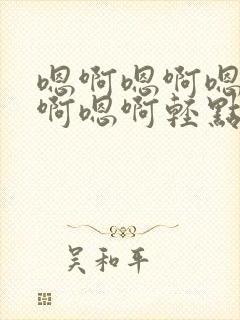 嗯啊嗯啊嗯
啊嗯啊輕點
吴和平